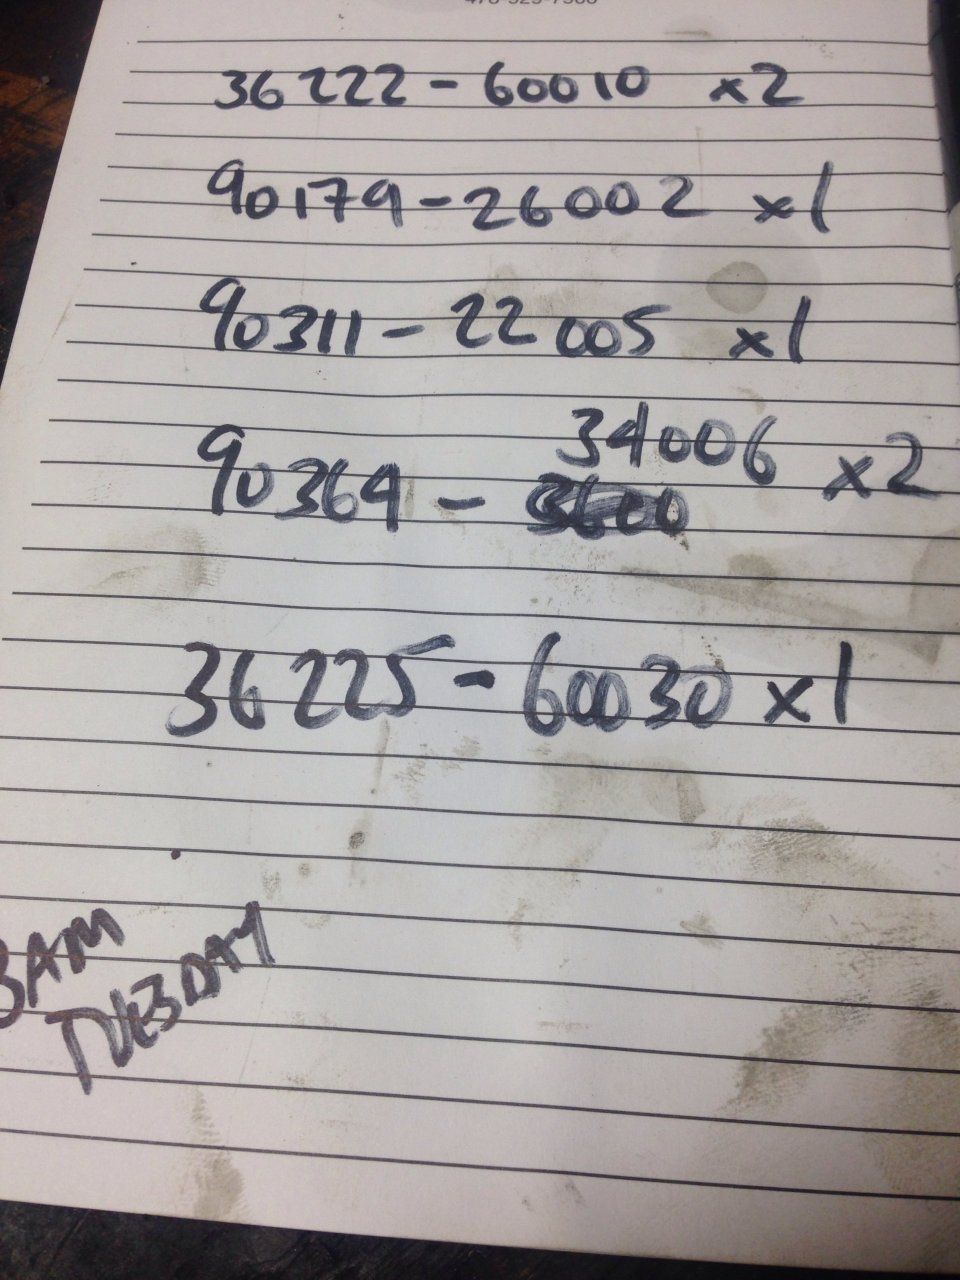 36222-60010 x2
90179-26002 x1
90311-22005 x1
34006
90364- x2
36225-60030 x1
TUESDAY